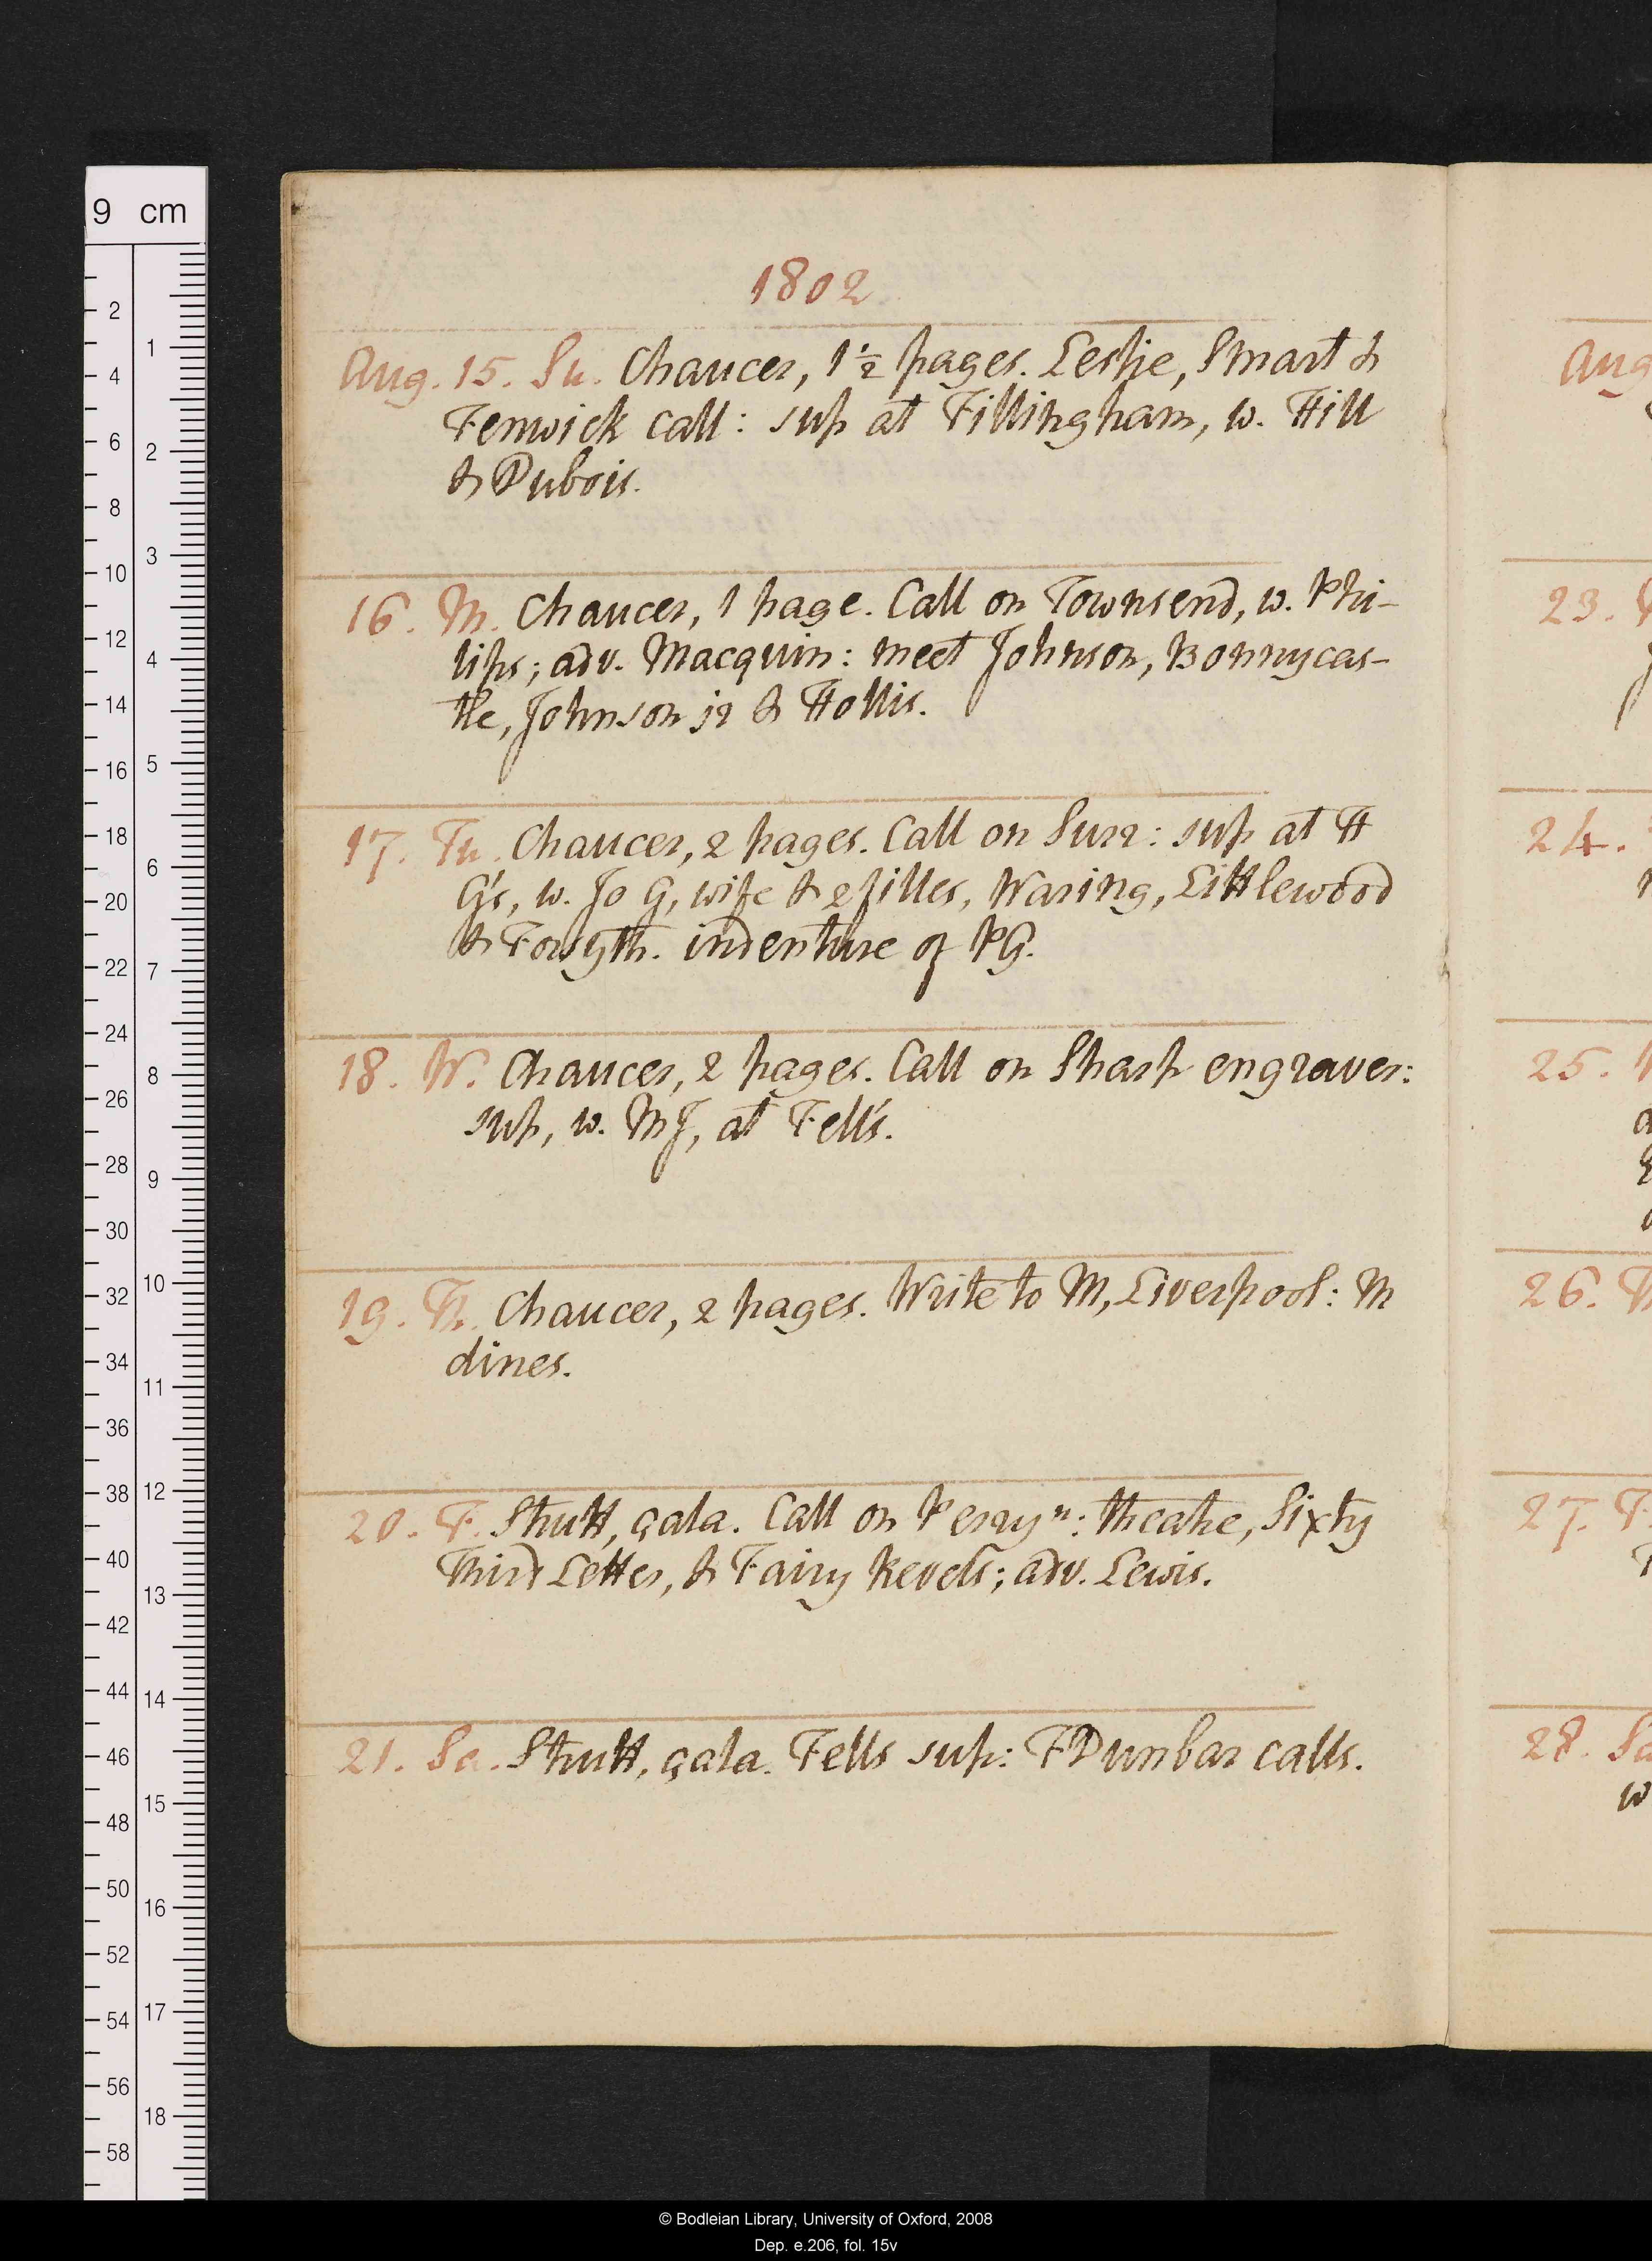 1802
Aug. 15. Su. Chaucer, 1½ pages. Leslie, Smart &
Fenwick call: sup at Fillingham, w. Hill
& Dubois.
16. M. Chaucer, 1 page. Call on Townsend, w. Phi-
lips; adv. Macquin: meet Johnson, Bonnycas-
tle, Johnson jr & Hollis.
17. Tu. Chaucer, 2 pages. Call on Surr: sup at H
G's, w. Jo G, wife & 2 filles, Waring, Littlewood
& Forsyth. indenture of PG.
18. W. Chaucer, 2 pages. Call on Sharp engraver:
sup, w. MJ, at Fell's.
19. Th. Chaucer, 2 pages. Write to M, Liverpool: M
dines.
20. F. Strutt, çala. Call on Perry n: theatre, Sixty
Third Letter, & Fairy Revels; adv. Lewis.
21. Sa. Strutt, çala. Fells sup: F Dunbar calls.
Aug
23.
24.
25.
26. Th
27. F
28. Sa
w
9 cm
2
4
6
8
10
12
14
16
18
20
22
24
26
28
30
32
34
36
38
40
42
44
46
48
50
52
54
56
58
1
2
3
4
5
6
7
8
9
10
11
12
13
14
15
16
17
18
© Bodleian Library, University of Oxford, 2008
Dep. e.206, fol. 15v